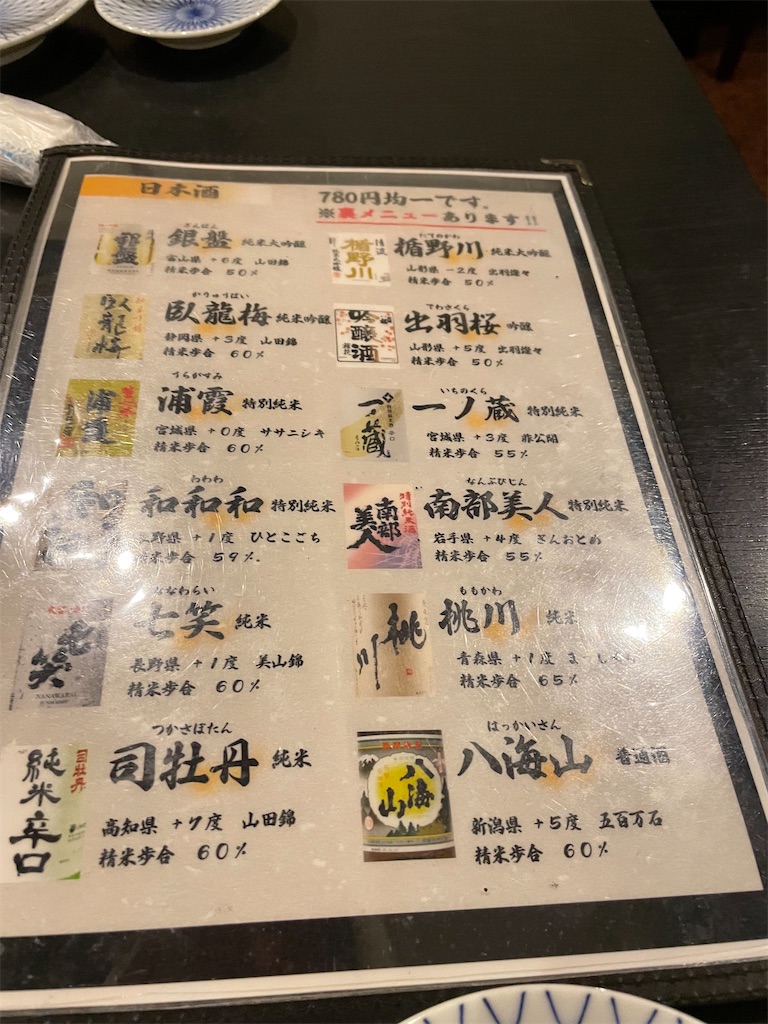 日本酒
780円均一です。
※裏メニューあります!!
ぎんばん
銀盤 純米大吟醸
富山県 +6度 山田錦
精米歩合 50%
たてのかわ
楯野川 純米大吟醸
山形県 -2度 出羽燦々
精米歩合 50%
がりゅうばい
臥龍梅 純米吟醸
静岡県 +3度 山田錦
精米歩合 60%
吟醸酒
でわざくら
出羽桜 吟醸
山形県 +5度 出羽燦々
精米歩合 50%
浦霞
うらがすみ
浦霞 特別純米
宮城県 +0度 ササニシキ
精米歩合 60%
一ノ蔵
いちのくら
一ノ蔵 特別純米
宮城県 +3度 非公開
精米歩合 55%
わわわ
和和和 特別純米
長野県 +1度 ひとごこち
精米歩合 59%
特別純米酒
南部美人
なんぶびじん
南部美人 特別純米
岩手県 +4度 ぎんおとめ
精米歩合 55%
七笑
NANAWARAI
ななわらい
七笑 純米
長野県 +1度 美山錦
精米歩合 60%
桃川
ももかわ
桃川 純米
青森県 +1度
精米歩合 65%
司牡丹
純米辛口
つかさぼたん
司牡丹 純米
高知県 +7度 山田錦
精米歩合 60%
八海山
はっかいさん
八海山 普通酒
新潟県 +5度 五百万石
精米歩合 60%